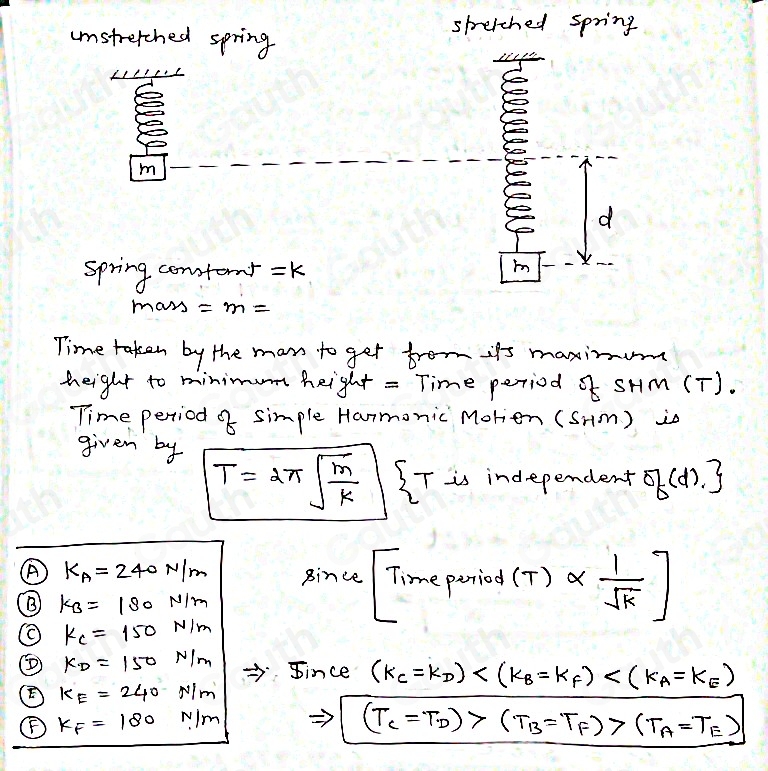 unstretched spring
stretched spring
m
d
m
Spring constant = K
mass = m =
Time taken by the mass to get from its maximum
height to minimum height = Time period of SHM (T).
Time period of Simple Harmonic Motion (SHM) is
given by
T = 2π √(m/K) {T is independent of (d).}
Ⓐ K_A = 240 N/m
Ⓑ K_B = 180 N/m
Ⓒ K_C = 150 N/m
Ⓓ K_D = 150 N/m
Ⓔ K_E = 240 N/m
Ⓕ K_F = 180 N/m
since [Time period (T) ∝ 1/√K]
⇒ Since (K_C = K_D) < (K_B = K_F) < (K_A = K_E)
⇒ (T_C = T_D) > (T_B = T_F) > (T_A = T_E)